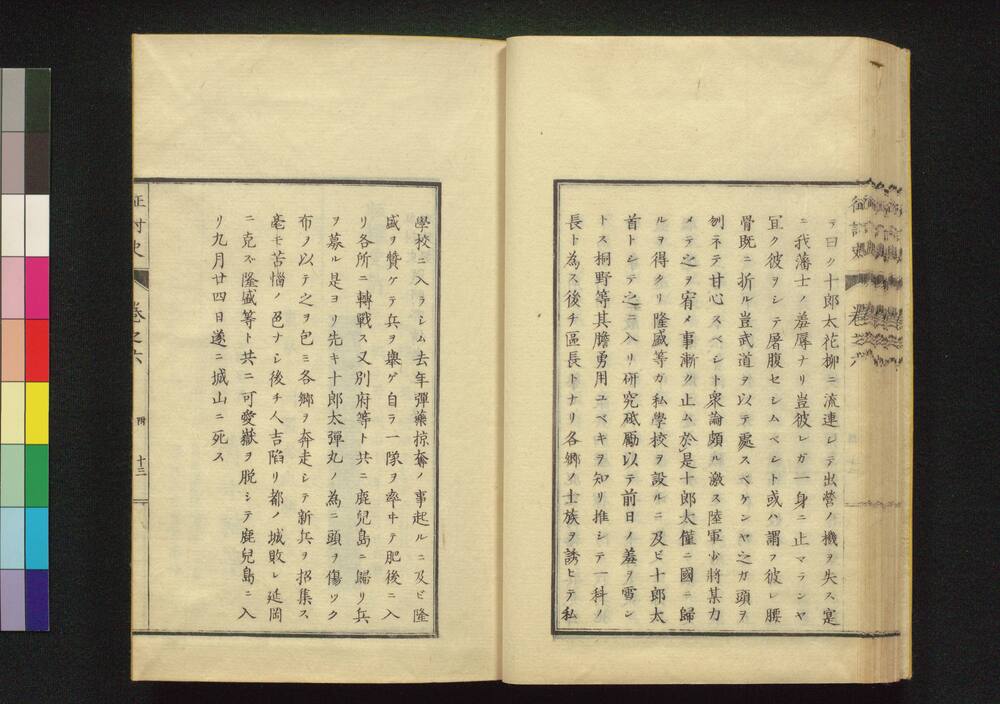 テ曰ク十郎太花柳ニ流連シテ出營ノ機ヲ失ス寔
ニ我藩士ノ羞辱ナリ豈彼レガ一身ニ止マランヤ
宜ク彼ヲシテ屠腹セシムベシト或ハ謂フ彼レ腰
骨既ニ折ル豈武道ヲ以テ處スベケンヤ之ガ頭ヲ
刎子テ甘心スベシト衆論頗ル激ス陸軍少將某力
メテ之ヲ宥メ事漸ク止ム於是十郎太僅ニ國ニ歸
ルヲ得タリ隆盛等ガ私學校ヲ設ルニ及ビ十郎太
首トシテ之ニ入リ研究砥勵以テ前日ノ羞ヲ雪ン
トス桐野等其膽勇用ユベキヲ知リ推シテ一科ノ
長ト為ス後チ區長トナリ各郷ノ士族ヲ誘ヒテ私
學校ニ入ラシム去年彈藥掠奪ノ事起ルニ及ビ隆
盛ヲ贊ケテ兵ヲ舉ゲ自ラ一隊ヲ率ヰテ肥後ニ入
リ各所ニ轉戰ス又別府等ト共ニ鹿兒島ニ歸リ兵
ヲ募ル是ヨリ先キ十郎太彈丸ノ為ニ頭ヲ傷ツク
布ノ以テ之ヲ包ミ各郷ヲ奔走シテ新兵ヲ招集ス
毫モ苦惱ノ色ナシ後チ人吉陷リ都ノ城敗レ延岡
ニ克ズ隆盛等ト共ニ可愛嶽ヲ脱シテ鹿兒島ニ入
リ九月廿四日遂ニ城山ニ死ス
征討史 卷之六 附 十三